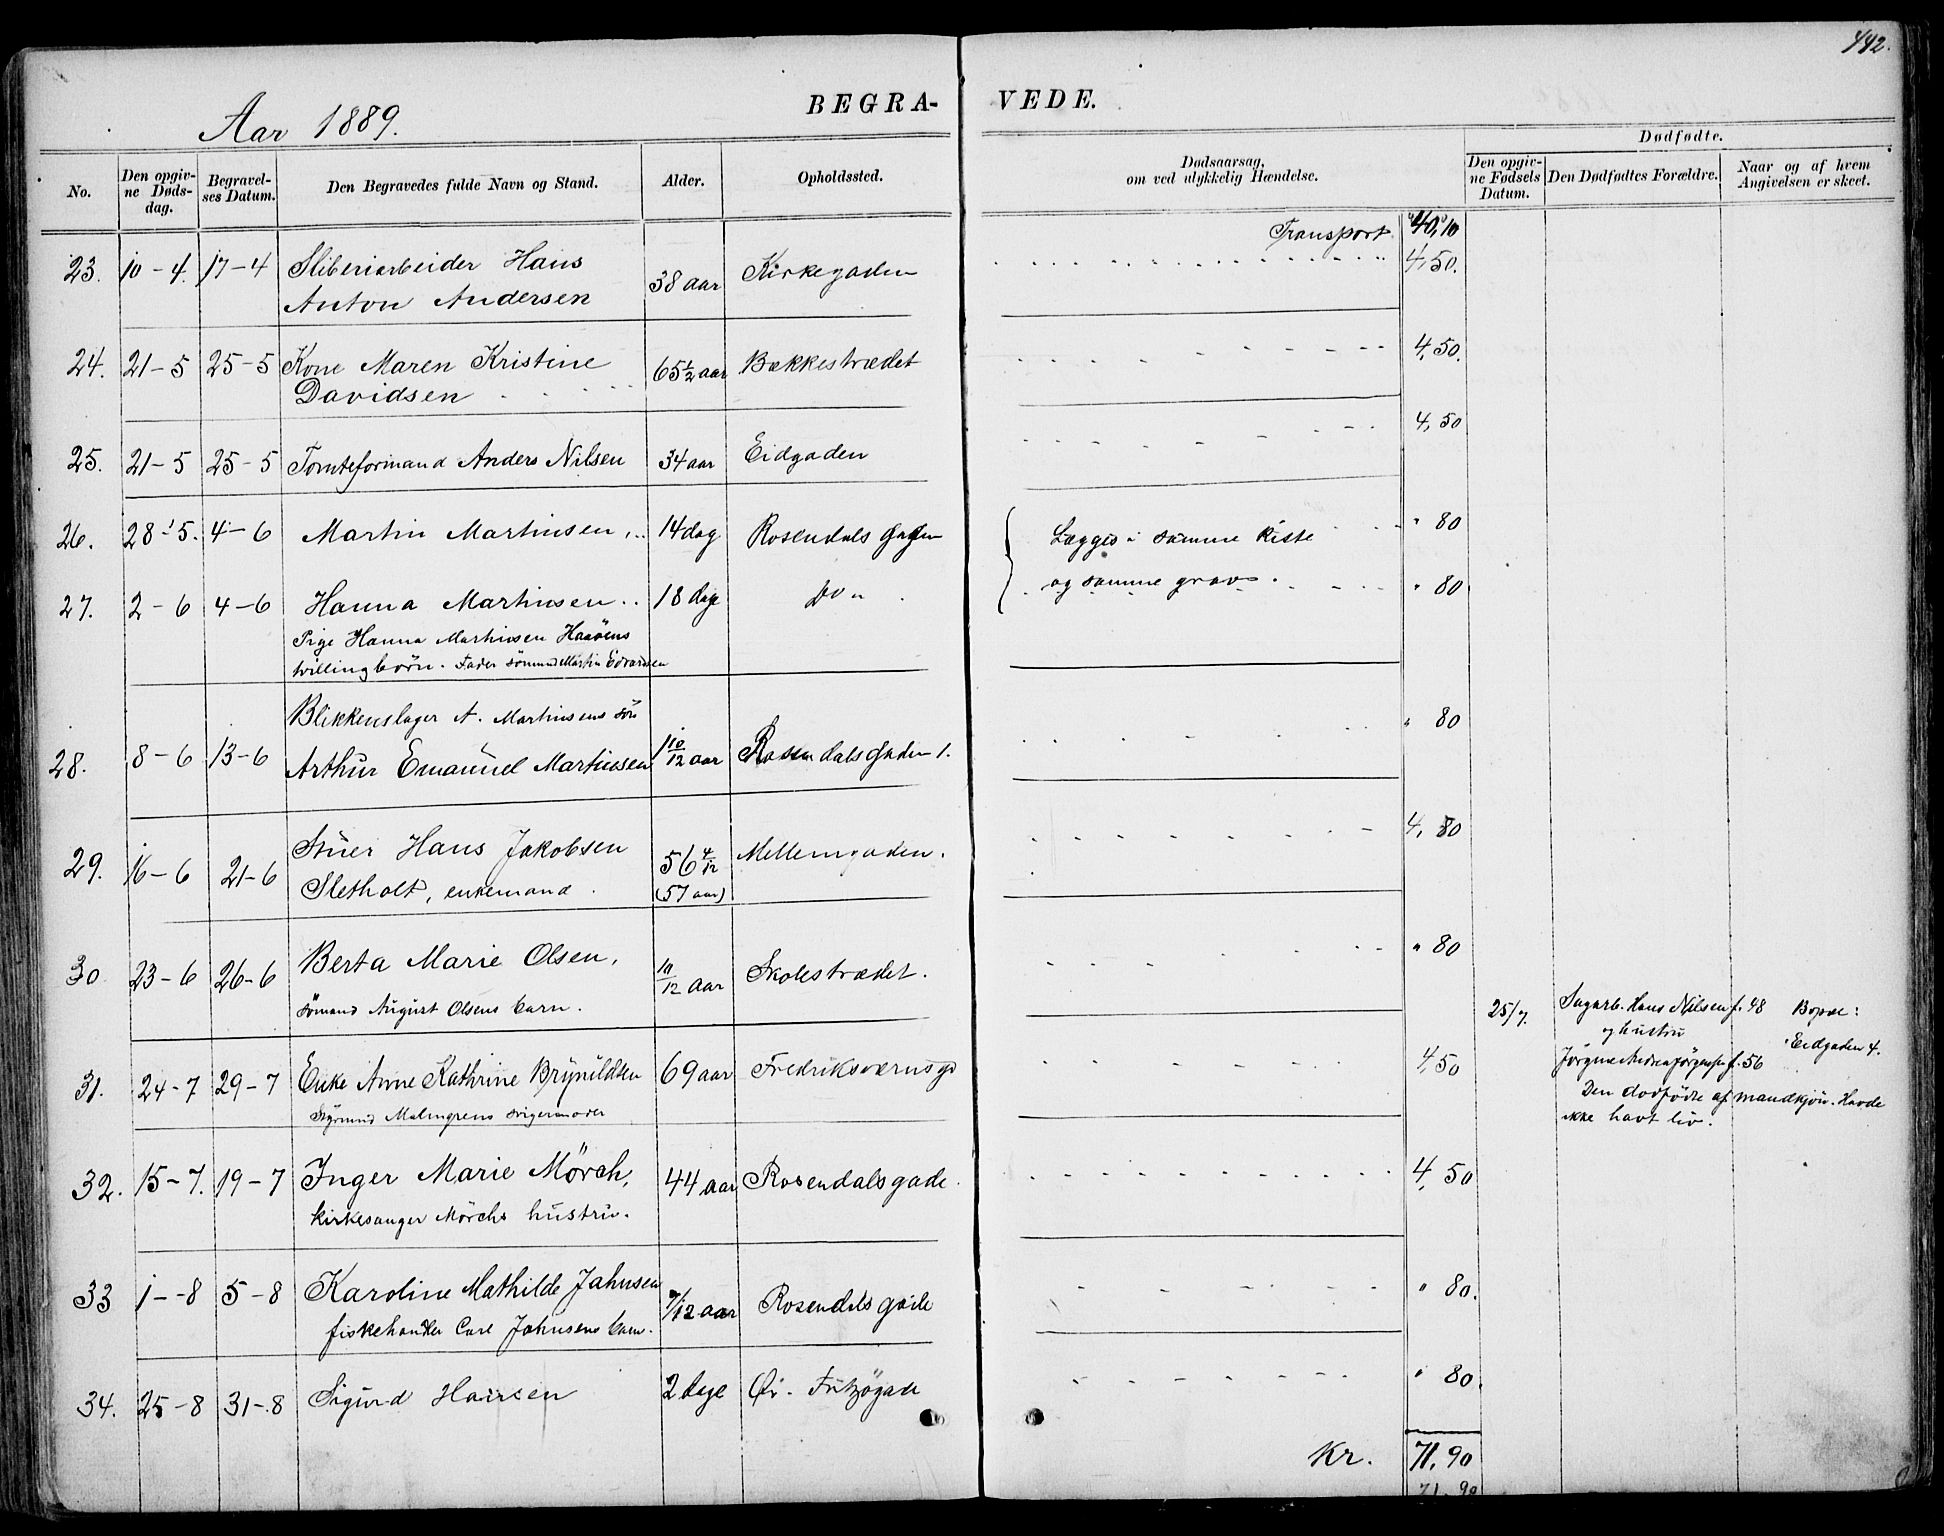 442.
Aar 1889.
BEGRA-
VEDE.
No.
Den opgiv-
ne Døds-
dag.
Begravel-
ses Datum.
Den Begravedes fulde Navn og Stand.
Alder.
Opholdssted.
Dødsaarsag,
om ved ulykkelig Hændelse.
Dødfødte.
Den opgiv-
ne Fødsels
Datum.
Den Dødfødtes Forældre.
Naar og af hvem
Angivelsen er skeet.
Transport 40,10
23. 10-4. 17-4 Sliberiarbeider Hans 38 aar Kirkegaden 4,50.
Anton Andersen
24. 21-5 25-5 Kone Maren Kristine 65½ aar Bakkestrædet 4,50.
Davidsen
25. 21-5 25-5 Tomteformand Anders Nilsen 34 aar Eidgaden 4,50
26. 28-5. 4-6 Martin Martinsen 14 dag Rosendals gaden Lægges i samme kiste " 80
27. 2-6 4-6 Hanna Martinsen 18 dage Do " og samme grav. " 80
Pige Hanna Martinsen Haaöens
tvillingbörn. Fader sömand Martin Edvardsen
Blikkenslager A. Martinsens sön " 80
28. 8-6 13-6 Arthur Emanuel Martinsen 1 10/12 aar Rosendalsgaden 1.
29. 16-6 21-6 Stuer Hans Jakobsen 56 4/12 Mellemgaden. 4,80
Sletholt, enkemand. (57 aar)
30 23-6 26-6 Berta Marie Olsen, 10/12 aar Skolestrædet. " 80
sömand August Olsens barn.
25/7. Sagarb. Hans Nilsen f. 48 Bopæl:
og hustru Eidgaden 4.
Jörgine Andrea Jörgensen f. 56
Den dodfödte af mandkjön. Havde
ikke havt liv.
31. 24-7 29-7 Enke Anne Kathrine Brynildsen 69 aar Fredriksværnsgd 4,50
Styrmand Malmgrens svigermoder
32. 15-7. 19-7 Inger Marie Mörch, 44 aar Rosendalsgade. 4,50
kirkesanger Mörchs hustru.
33 1-8 5-8 Karoline Mathilde Jahnsen 7/12 aar Rosendals gade " 80.
fiskehandler Carl Jahnsens barn.
34. 25-8 31-8 Sigurd Hansen 2 dage Ör. Fritzögade " 80.
Kr. 71,90
71,90